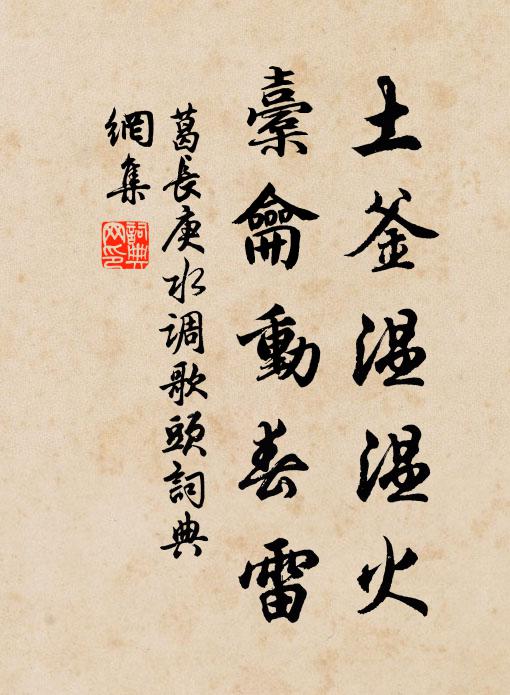 土釜温温火
橐籥動春雷
葛長庚水调歌頭詞典
網集
詞典
网印